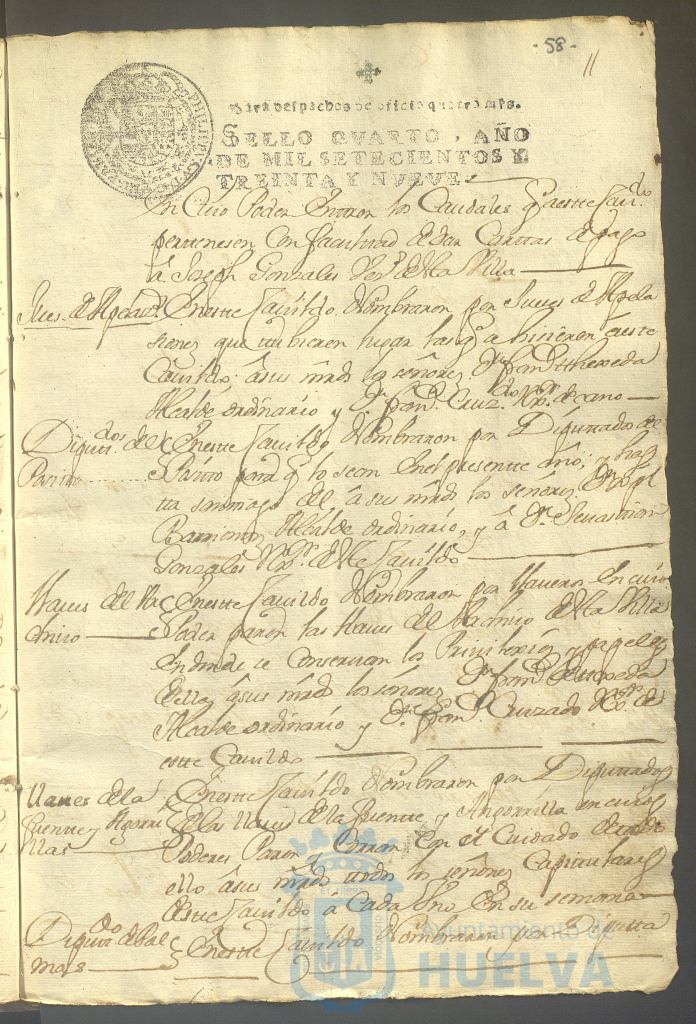 -58-
11
PHILIPPUS V
Para despachos de oficio quatro mrs.
SELLO QVARTO, AÑO
DE MIL SETECIENTOS Y
TREINTA Y NVEVE.
en Cuio Poder entren los Caudales q̃ a estte Cauildo
perttenesen con facultad de dar Carttas de pago
â Joseph Gonzales de stta Villa
Jues. de Apelaz.s
Enestte Cauildo Nombraron por Jueses de Apela
siones que ubieren lugar las q̃ a hisieren a estte
Cauildo, â sus mrds los señores Dn fran.co
Alcalde ordinario y Dn fran.co Cruz.do
Diputt.dos del
Partido
Enestte Cauildo Nombraron por Diputtados del
para q̃ lo sean En el presentte año, y has
tta santtiago del â sus mrds los señores
Alcalde ordinario, y â Dn Sevasttian
Gonzales de stte Cauildo
Llaues del Ar
chivo
Enestte Cauildo Nombraron por llaueros En cuio
Poder paren las llaues del Archivo de stta Villa
En donde se Conseruan los Privilexios y papeles
de ella, â sus mrds los señores Dn fran.co
Alcalde ordinario y Dn fran.co Cruzado
estte Cauildo
Llaues de la
fuentte y Agorri
llas
Enestte Cauildo Nombraron por Diputtados
de las llaues de la fuentte y Angorrilla en cuios
Poderes Paren y Corran con el Cuidado de ttodo
ello â sus mrds ttodos los señores Capittulares
de estte Cauildo a Cada Uno En su semana
Diputt.do de Pal
mas
Enestte Cauildo Nombraron por Diputta
Ayuntamiento de
HUELVA